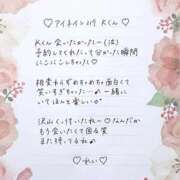 ♡アイネイン119 Kくん♡
Kくん会いたかったー(泣)
予約してくれたって分かった瞬間
にこにこしちゃった♡
相変わらずめちゃめちゃ面白くて
笑いすぎちゃったー♡一緒に
いてほんと楽しい♡
沢山くっ付いれた♡なんだか
もう会いたくて困る笑
また待ってるね♡
♡れい♡